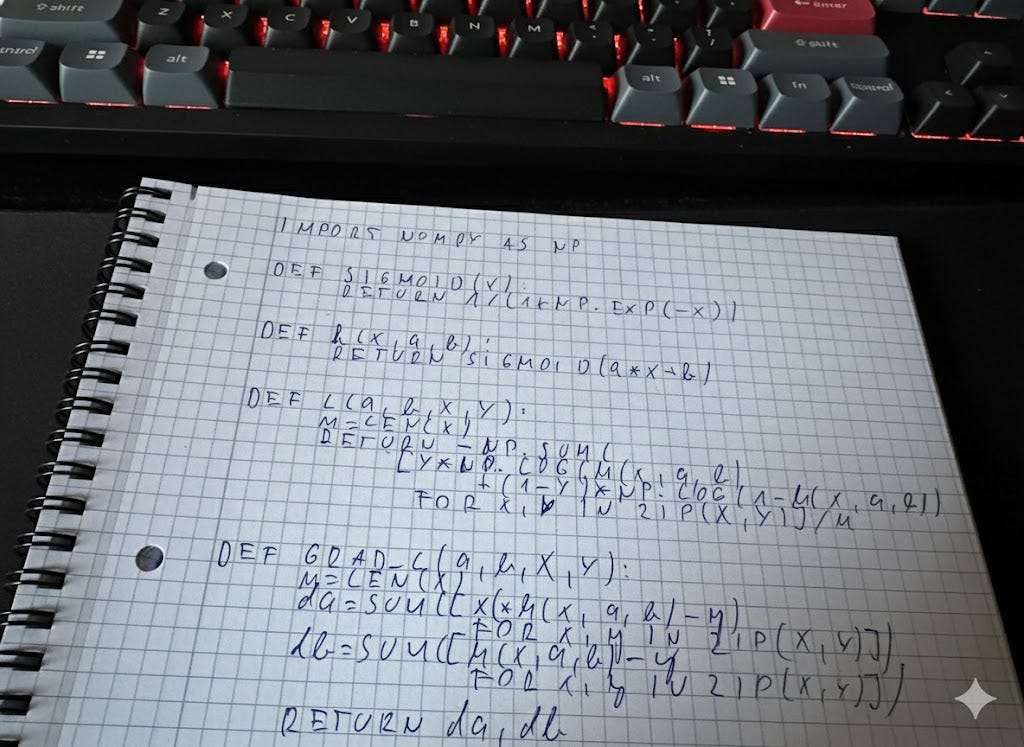 shift
Z
X
C
V
B
N
M
enter
shift
control
alt
alt
fn
control
IMPORT NUMPY AS NP
DEF SIGMOID(X):
RETURN 1/(1+NP.EXP(-X))
DEF h(X, a, b):
RETURN SIGMOID(a*X+b)
DEF L(a, b, X, Y):
M=LEN(X)
RETURN -NP.SUM(
[Y*NP.LOG(h(X, a, b)
+(1-Y)*NP.LOG(1-h(X, a, b))
FOR X, Y IN ZIP(X, Y)]/M
DEF GRAD_L(a, b, X, Y):
M=LEN(X)
da=SUM([X(*h(X, a, b)-y)
FOR X, y IN ZIP(X, Y)])
db=SUM([h(X, a, b)-y
FOR X, y IN ZIP(X, Y)])
RETURN da, db